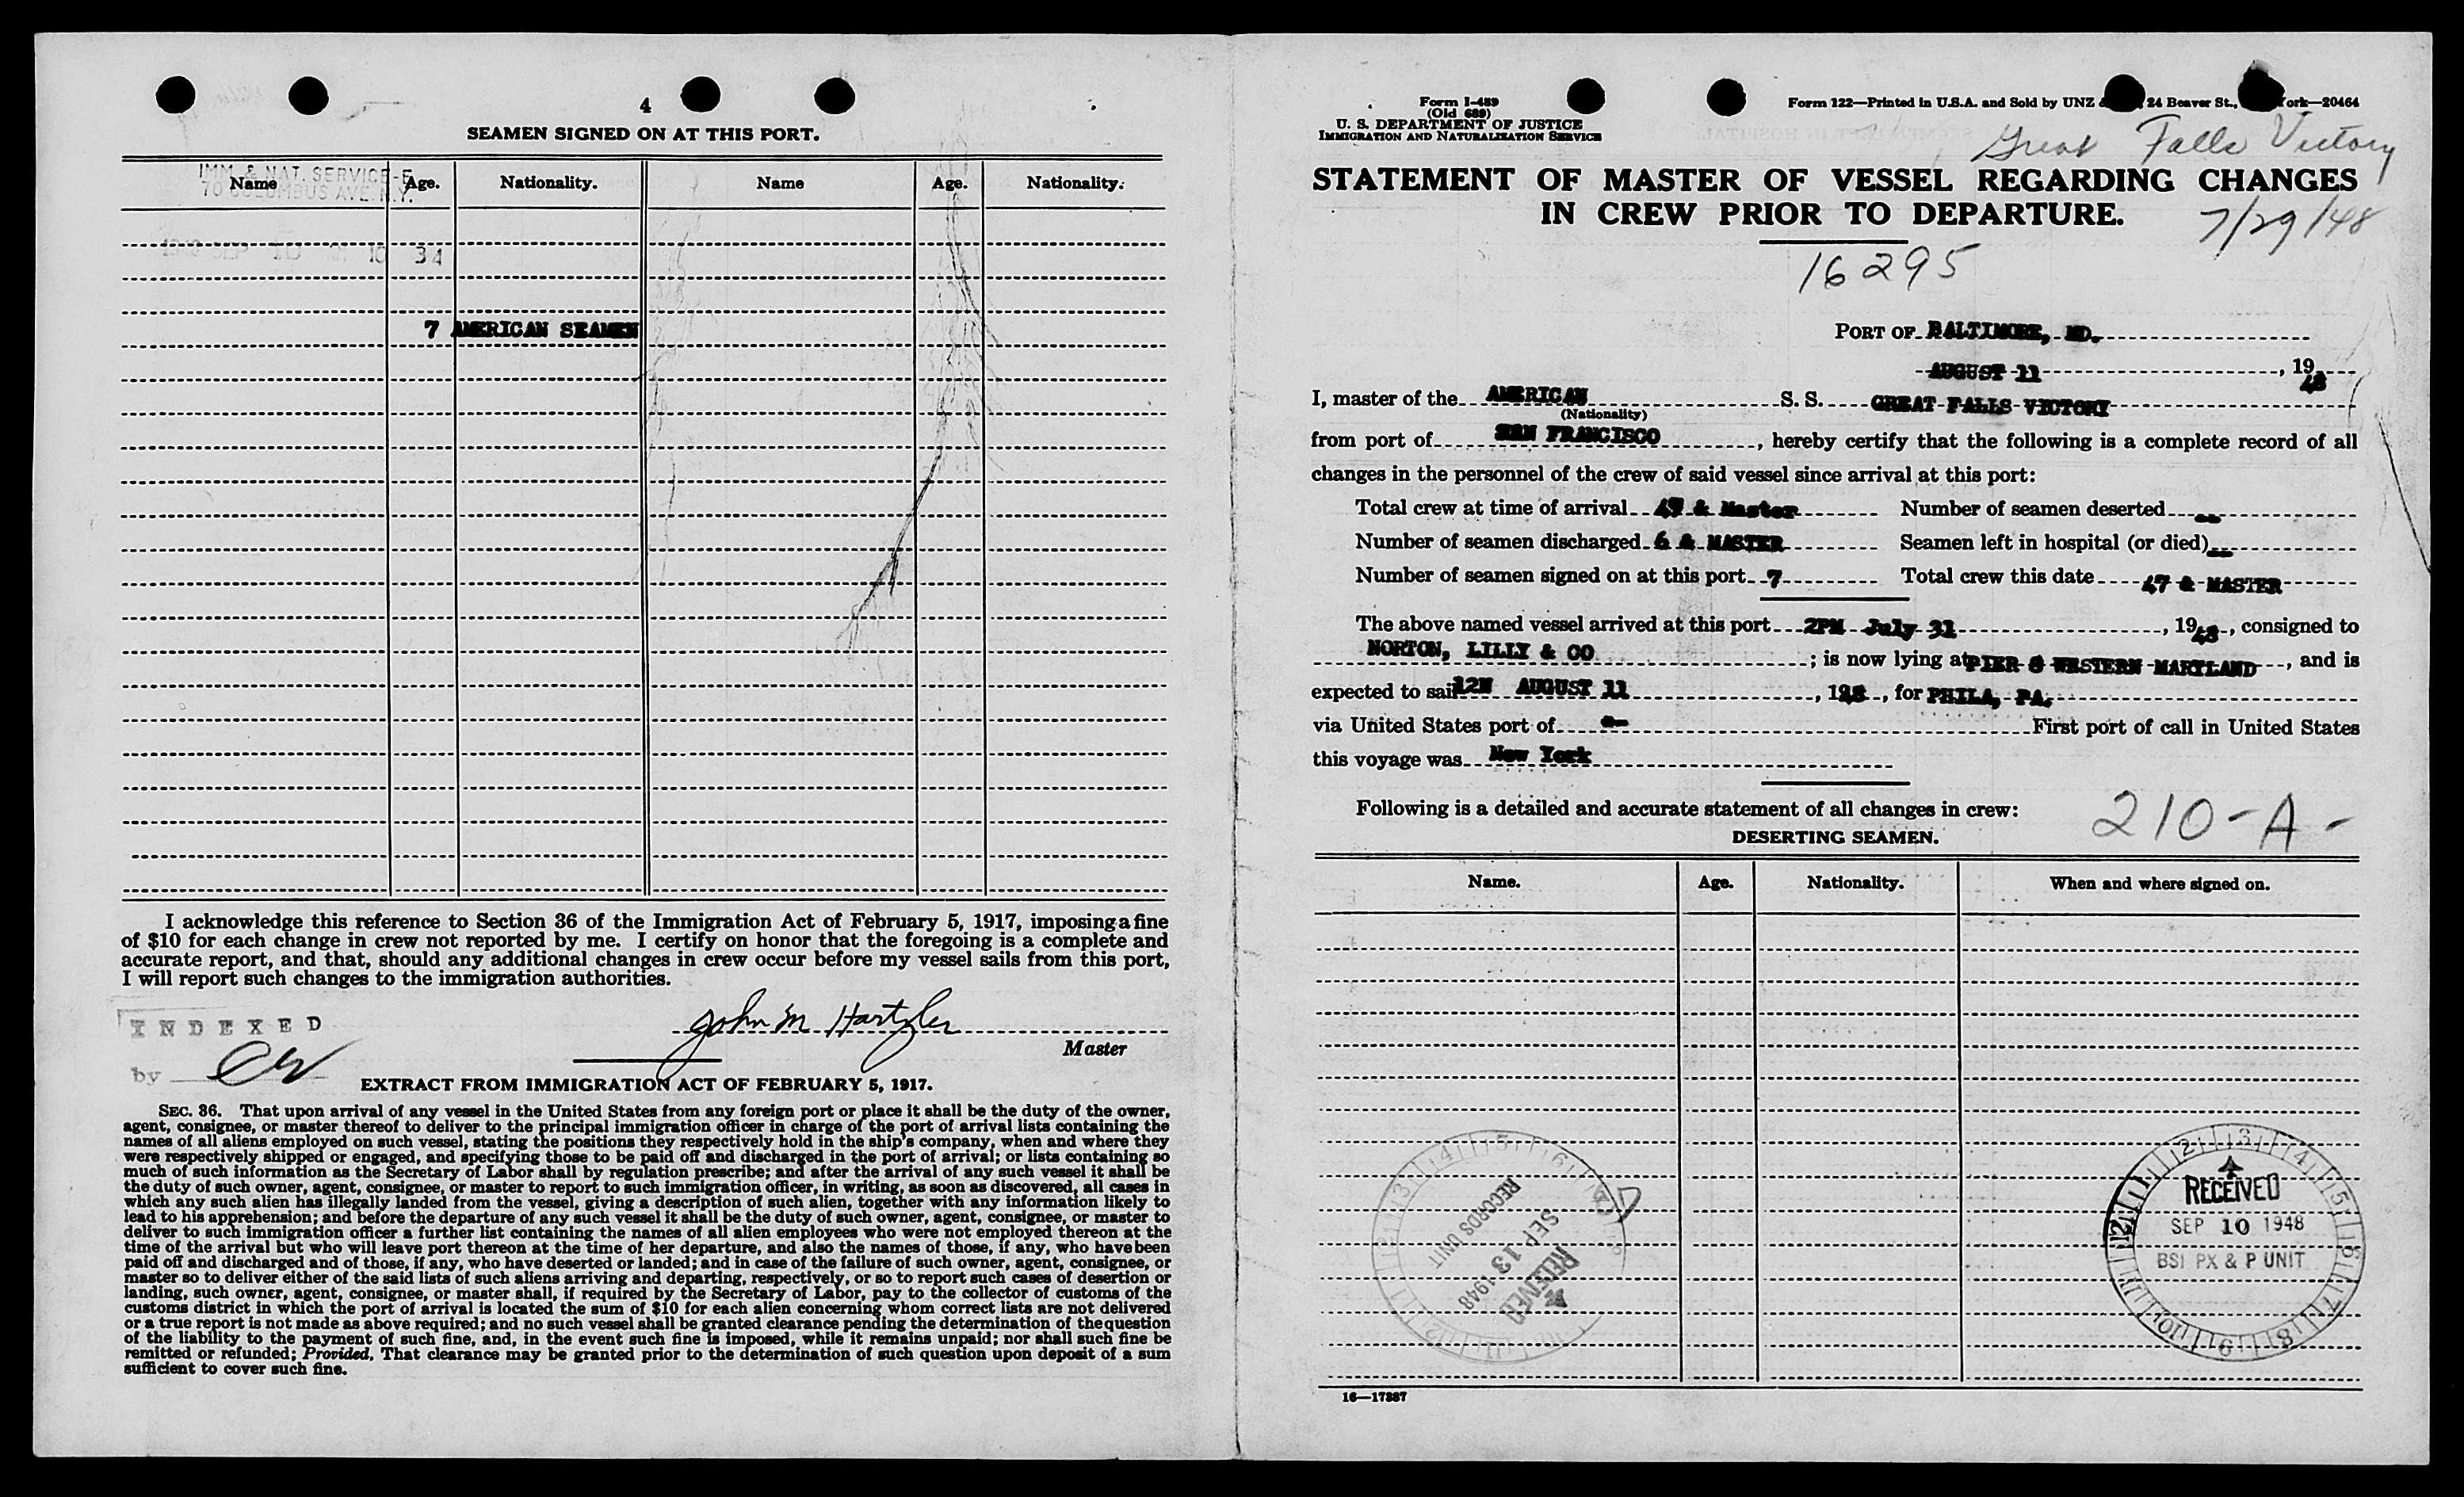 4
SEAMEN SIGNED ON AT THIS PORT.
IMM. & NAT. SERVICE-E
70 COLUMBUS AVE. N.Y.
Name Age. Nationality. Name Age. Nationality.
SEP 10 34
7 AMERICAN SEAMEN
I acknowledge this reference to Section 36 of the Immigration Act of February 5, 1917, imposing a fine
of $10 for each change in crew not reported by me. I certify on honor that the foregoing is a complete and
accurate report, and that, should any additional changes in crew occur before my vessel sails from this port,
I will report such changes to the immigration authorities.
INDEXED
by
John M Hartzler
Master
EXTRACT FROM IMMIGRATION ACT OF FEBRUARY 5, 1917.
SEC. 36. That upon arrival of any vessel in the United States from any foreign port or place it shall be the duty of the owner,
agent, consignee, or master thereof to deliver to the principal immigration officer in charge of the port of arrival lists containing the
names of all aliens employed on such vessel, stating the positions they respectively hold in the ship's company, when and where they
were respectively shipped or engaged, and specifying those to be paid off and discharged in the port of arrival; or lists containing so
much of such information as the Secretary of Labor shall by regulation prescribe; and after the arrival of any such vessel it shall be
the duty of such owner, agent, consignee, or master to report to such immigration officer, in writing, as soon as discovered, all cases in
which any such alien has illegally landed from the vessel, giving a description of such alien, together with any information likely to
lead to his apprehension; and before the departure of any such vessel it shall be the duty of such owner, agent, consignee, or master to
deliver to such immigration officer a further list containing the names of all alien employees who were not employed thereon at the
time of the arrival but who will leave port thereon at the time of her departure, and also the names of those, if any, who have been
paid off and discharged and of those, if any, who have deserted or landed; and in case of the failure of such owner, agent, consignee, or
master so to deliver either of the said lists of such aliens arriving and departing, respectively, or so to report such cases of desertion or
landing, such owner, agent, consignee, or master shall, if required by the Secretary of Labor, pay to the collector of customs of the
customs district in which the port of arrival is located the sum of $10 for each alien concerning whom correct lists are not delivered
or a true report is not made as above required; and no such vessel shall be granted clearance pending the determination of the question
of the liability to the payment of such fine, and, in the event such fine is imposed, while it remains unpaid; nor shall such fine be
remitted or refunded; Provided, That clearance may be granted prior to the determination of such question upon deposit of a sum
sufficient to cover such fine.
Form I-489
(Old 689)
U. S. DEPARTMENT OF JUSTICE
IMMIGRATION AND NATURALIZATION SERVICE
Form 122—Printed in U.S.A. and Sold by UNZ & 24 Beaver St., York—20464
Great Falls Victory
STATEMENT OF MASTER OF VESSEL REGARDING CHANGES
IN CREW PRIOR TO DEPARTURE.
7/29/48
16295
PORT OF BALTIMORE, MD.
AUGUST 11, 1948
I, master of the AMERICAN S. S. GREAT FALLS VICTORY
(Nationality)
from port of SAN FRANCISCO, hereby certify that the following is a complete record of all
changes in the personnel of the crew of said vessel since arrival at this port:
Total crew at time of arrival 47 & Master Number of seamen deserted --
Number of seamen discharged 6 & MASTER Seamen left in hospital (or died) --
Number of seamen signed on at this port 7 Total crew this date 47 & MASTER
The above named vessel arrived at this port 2PM July 31, 1948, consigned to
NORTON, LILLY & CO; is now lying at PIER 8 WESTERN MARYLAND, and is
expected to sail 12N AUGUST 11, 1948, for PHILA, PA.
via United States port of -- First port of call in United States
this voyage was New York
Following is a detailed and accurate statement of all changes in crew:
210-A-
DESERTING SEAMEN.
Name. Age. Nationality. When and where signed on.
RECEIVED
SEP 13 1948
RECORDS UNIT
RECEIVED
SEP 10 1948
BSI PX & P UNIT
16—17387